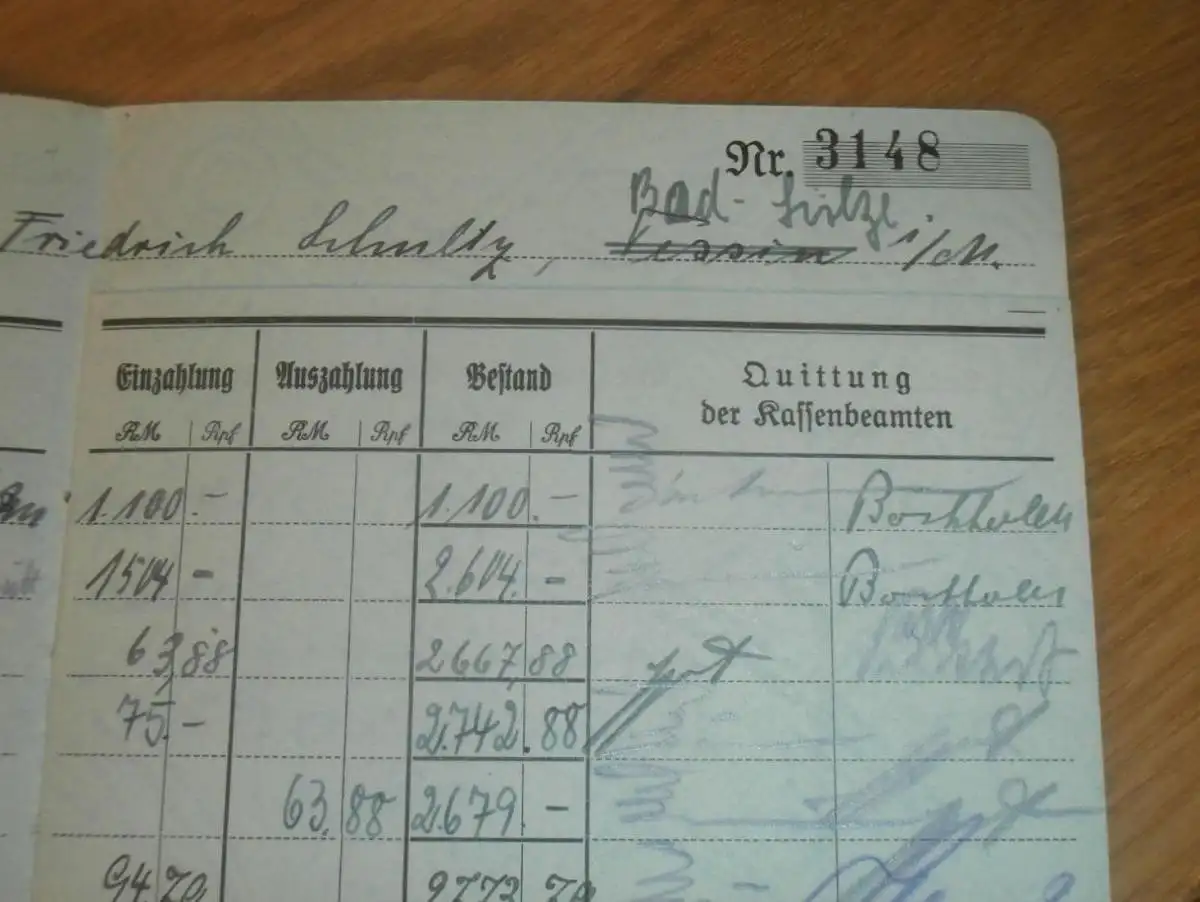 Nr. 3148
Bad-Sülze.
Friedrich Schultz, Tessin i/M.
Einzahlung Auszahlung Bestand Quittung
der Kassenbeamten
RM Rpf RM Rpf RM Rpf
1.100.- 1.100.-
1504 - 2.604. -
63,88 2667,88
75.- 2.742.88
63.88 2.679. -
94.70 2773.70